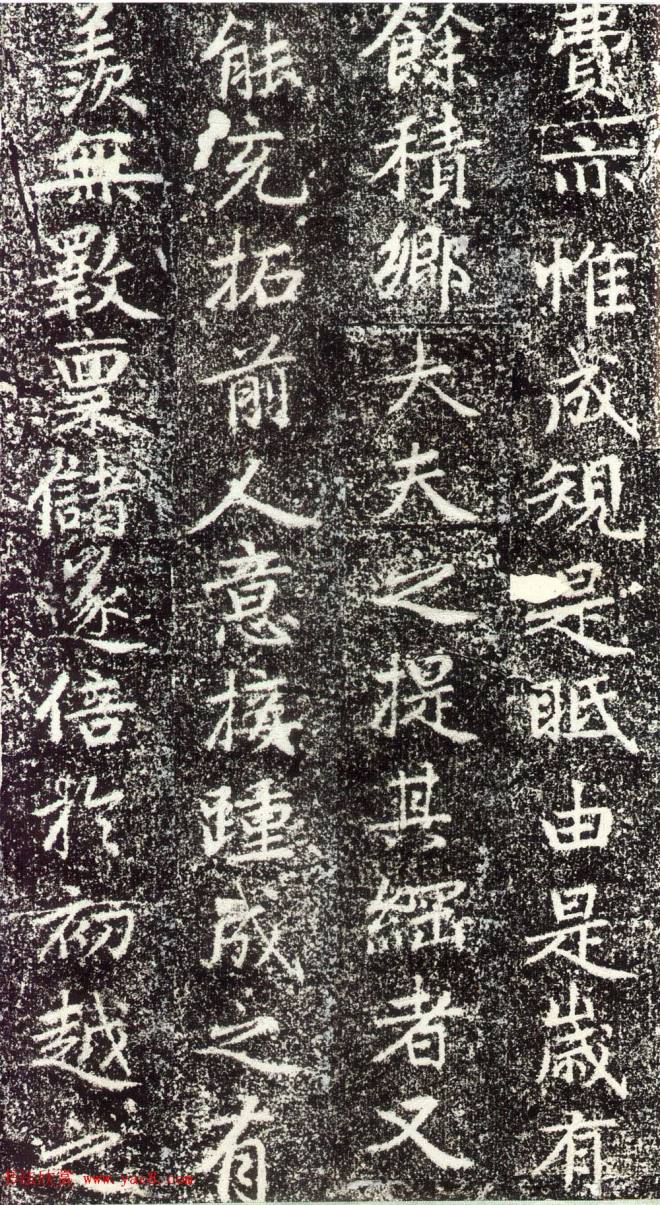 費亦惟成規是眂由是歲有
餘積鄉大夫之提其綱者又
能充拓前人意接踵成之有
羨無斁稟儲遂倍於初越之
www.yac8.com